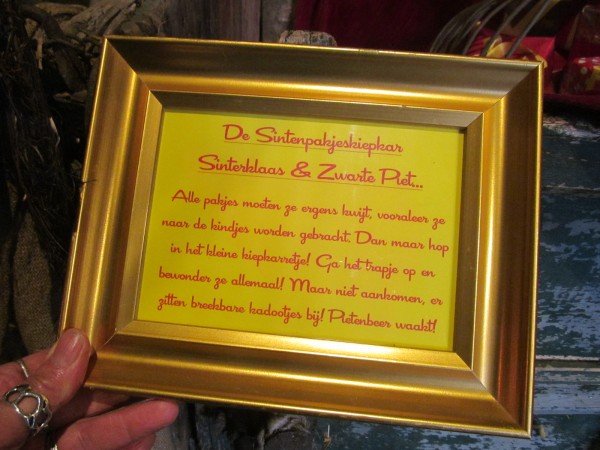 De Sintenpakjeskiepkar
Sinterklaas & Zwarte Piet...
Alle pakjes moeten ze ergens kwijt, vooraleer ze
naar de kindjes worden gebracht. Dan maar hop
in het kleine kiepkarretje! Ga het trapje op en
bewonder ze allemaal! Maar niet aankomen, er
zitten breekbare kadootjes bij! Pietenbeer waakt!